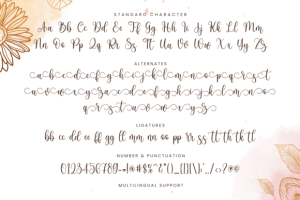 STANDARD CHARACTER
Aa Bb Cc Dd Ee Ff Gg Hh Ii Jj Kk Ll Mm
Nn Oo Pp Qq Rr Ss Tt Uu Vv Ww Xx Yy Zz
ALTERNATES
a b c d e f g h i j k l m n o p q r s t
u v w x y z a b c d e f g h i j k l m n o
p q r s t u v w x y z
LIGATURES
bb cc dd ee ff gg ll mm nn oo pp rr ss tt th tk tl
NUMBER & PUNCTUATION
MULTILINGUAL SUPPORT